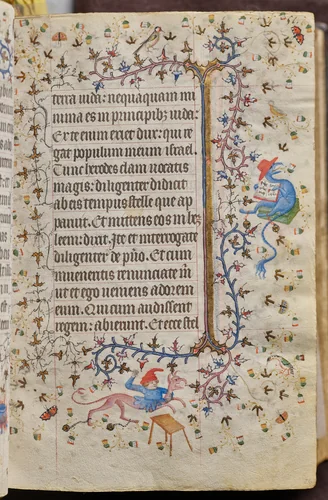 terra iuda: nequaquam mi
nima es in principibz iuda:
Ex te enim exiet dux: qui re
gat populum meum israel.
Tunc herodes clam uocatis
magis: diligenter didicit
ab eis tempus stelle que ap
paruit. Et mittens eos in bez
leem: dixit. Ite et interrogate
diligenter de puero. Et cum
inuenentis renunciate m
ut et ego ueniens adorem
eum. Qui cum audissent
regem: abierunt. Et ecce stel